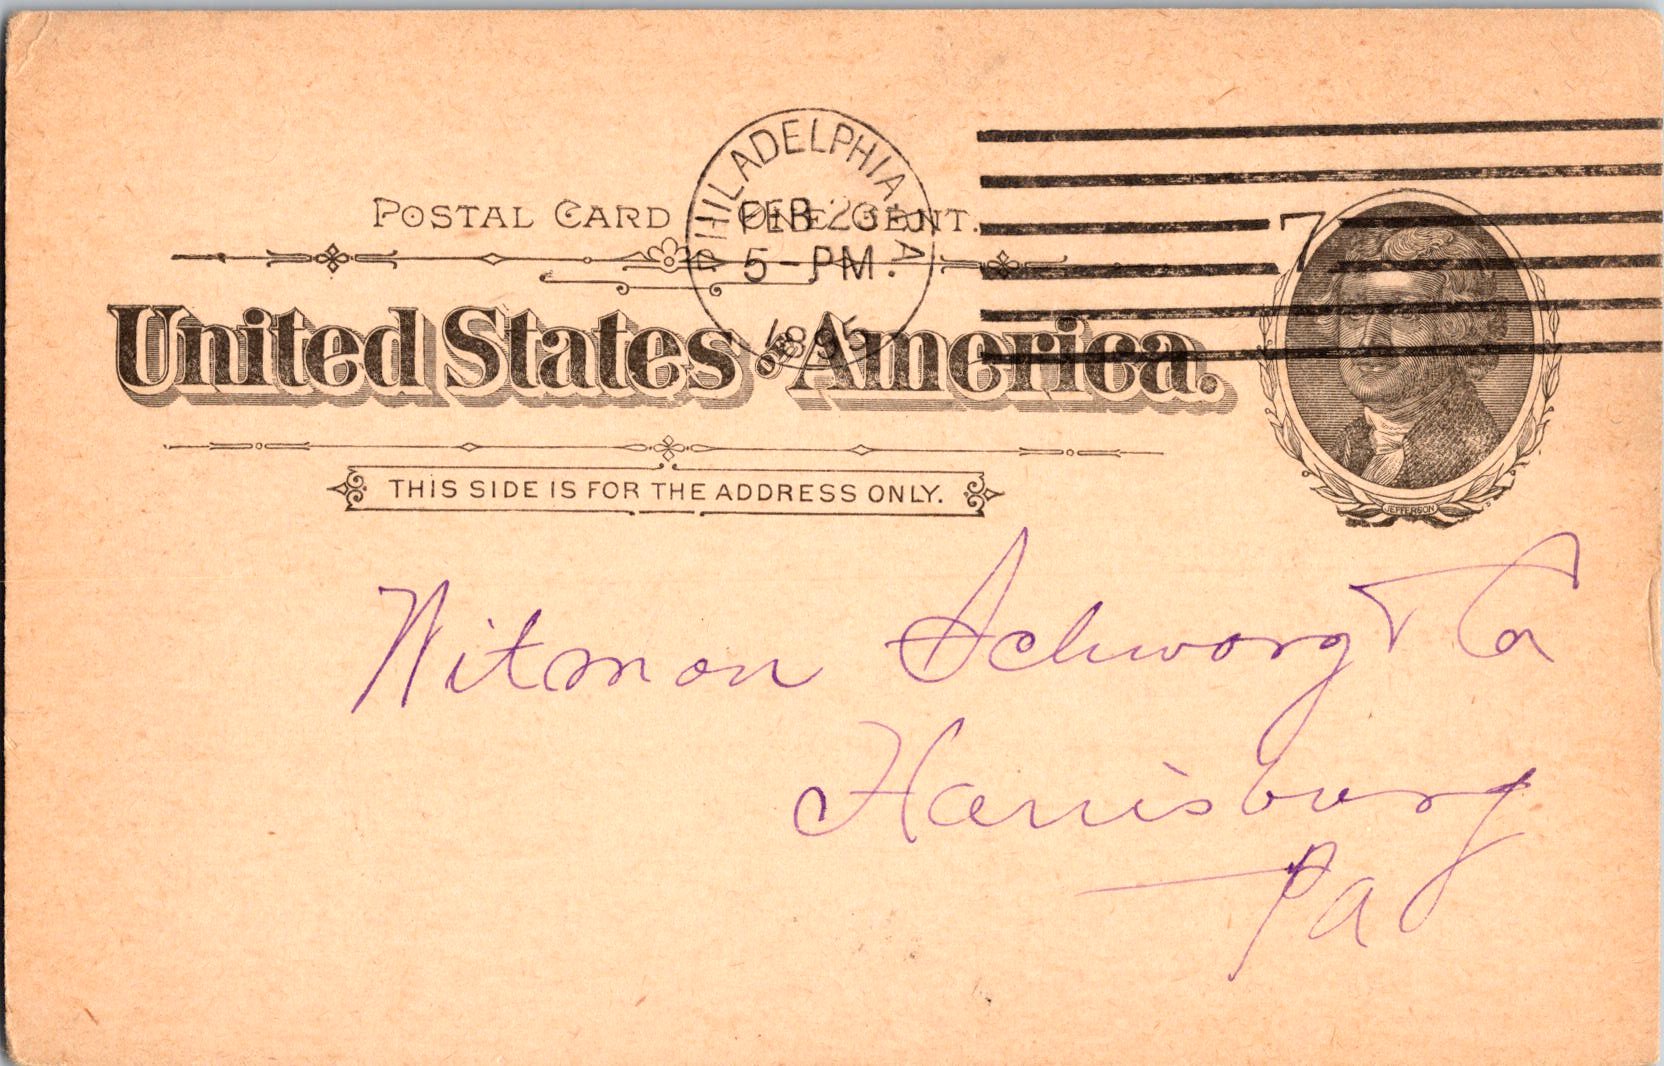 PHILADELPHIA, PA
POSTAL CARD ONE CENT.
FEB 23
5-PM.
1895
7
United States of America.
THIS SIDE IS FOR THE ADDRESS ONLY.
JEFFERSON
Witman Schwarz & Co
Harrisburg
Pa